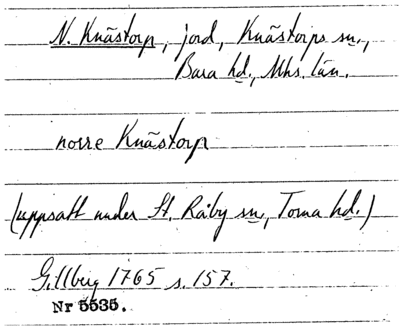 N. Knästorp, jord, Knästorps sn.,
Bara hd., Mhs. län.
norre Knästorp
(uppsatt under St. Råby sn, Torna hd.)
Gillberg 1765 s. 157.
Nr 5535.